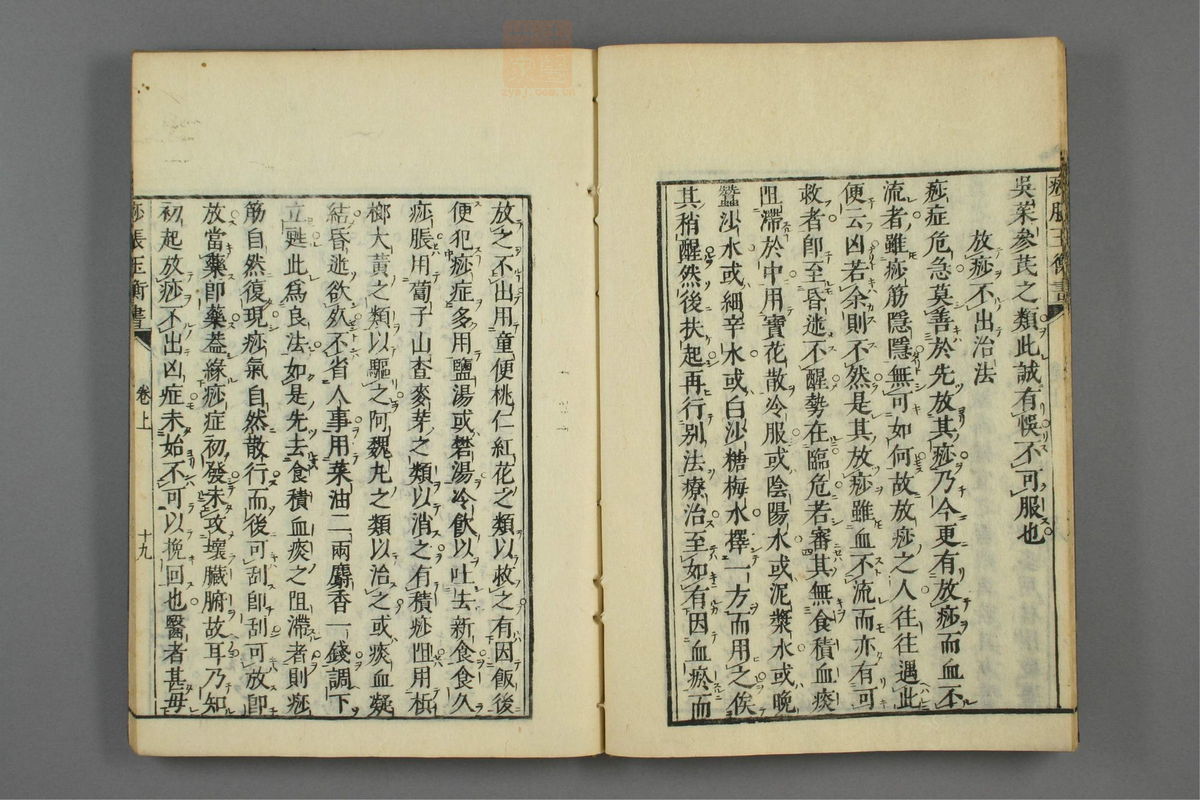 痧脹玉衡書
吳茱參芪之類此誠有悞不可服也
放痧不出治法
痧症危急莫善於先放其痧乃今更有放痧而血不
流者雖痧筋隱隱無可如何故放痧之人往往遇此
便云凶若余則不然是其放痧雖血不流而亦有可
救者卽至昏迷不醒勢在臨危若審其無食積血痰
阻滯於中用寶花散冷服或陰陽水或泥漿水或晚
蠶沙水或細辛水或白沙糖梅水擇一方而用之俟
其稍醒然後扶起再行别法療治至如有因血瘀而
放之不出用童便桃仁紅花之類以救之有因飯後
便犯痧症多用鹽湯或礬湯冷飲以吐去新食食久
痧脹用蔔子山查麥芽之類以消之有積痧阻用檳
榔大黃之類以驅之阿魏丸之類以治之或痰血凝
結昏迷欲死不省人事用菜油二兩麝香一錢調下
立甦此爲良法如是先去食積血痰之阻滯者則痧
筋自然復現痧氣自然散行而後可刮卽刮可放卽
放當藥卽藥葢緣痧症初發未攻壞臟腑故耳乃知
初起放痧不出凶症未始不可以挽回也醫者甚毋
痧脹玉衡書
卷上
十九
zysj.com.cn